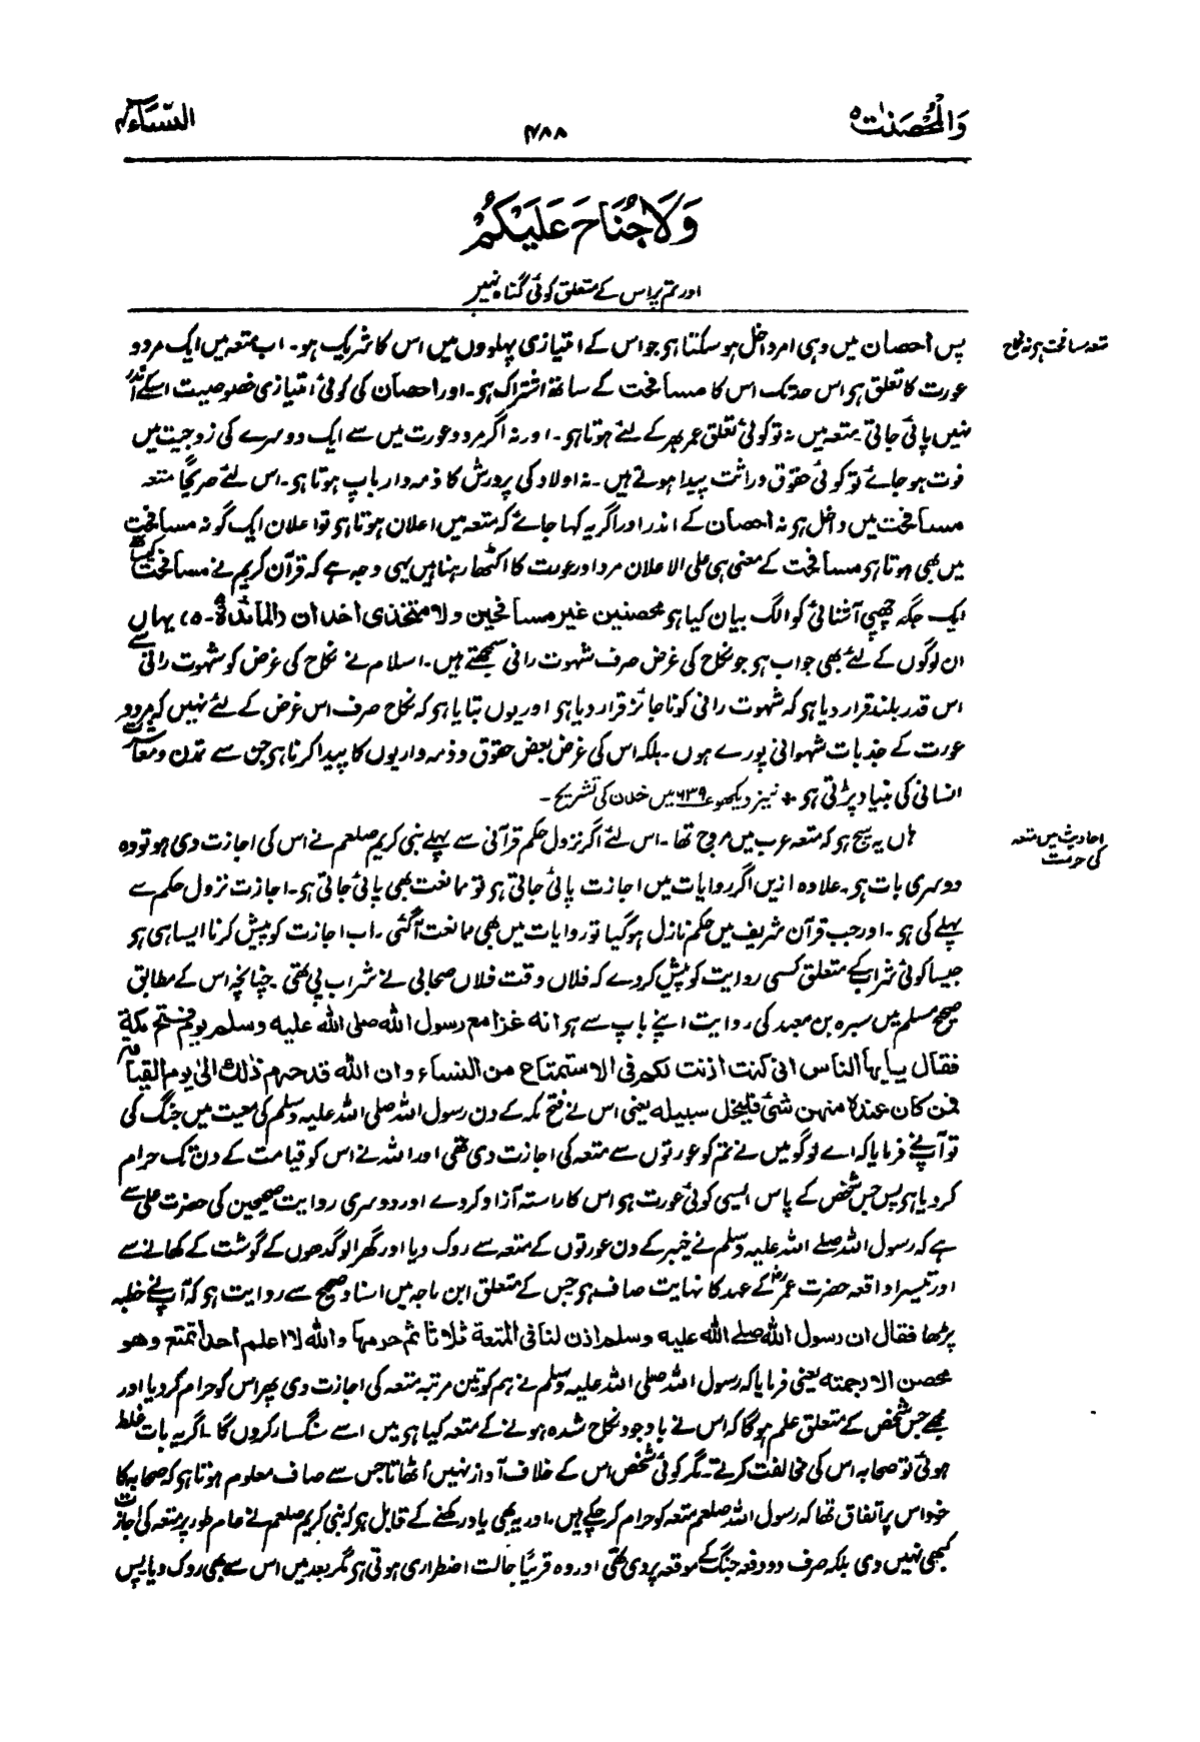 وَالْمُحْصَنٰت ۵
۴۸۸
النِّسَآء ۴
وَلَا جُنَاحَ عَلَيْكُمْ
اور تم پر اس کے متعلق کوئی گناہ نہیں
متعہ مسافحت ہے نہ نکاح
پس احصان میں وہی امر داخل ہو سکتا ہو جو اس کے امتیازی پہلووں میں اس کا شریک ہو۔ اب متعہ میں ایک مرد و
عورت کا تعلق ہو اس حد تک اس کا مسافحت کے ساتھ اشتراک ہو۔ اور احصان کی کوئی امتیازی خصوصیت اسکے اندر
نہیں پائی جاتی متعہ میں نہ تو کوئی تعلق عمر بھر کے لئے ہوتا ہو۔ اور نہ اگر مرد و عورت میں سے ایک دوسرے کی زوجیت میں
فوت ہو جائے تو کوئی حقوق وراثت پیدا ہوتے ہیں۔ نہ اولاد کی پرورش کا ذمہ دار باپ ہوتا ہو۔ اس لئے صریحًا متعہ
مسافحت میں داخل ہو نہ احصان کے اندر اور اگر یہ کہا جائے کہ متعہ میں اعلان ہوتا ہو تو اعلان ایک گونہ مسافحت
میں بھی ہوتا ہو مسافحت کے معنی ہی علی الاعلان مرد اور عورت کا اکٹھا رہنا ہیں یہی وجہ ہے کہ قرآن کریم نے مسافحت کیساتھ
ایک جگہ چھپی آشنائی کو الگ بیان کیا ہو محصنین غیر مسافحین ولا متخذی اخدان (المائدۃ۔۵) یہاں
ان لوگوں کے لئے بھی جواب ہو جو نکاح کی غرض صرف شہوت رانی سمجھتے ہیں۔ اسلام نے نکاح کی غرض کو شہوت رانی سے
اس قدر بلند قرار دیا ہو کہ شہوت رانی کو ناجائز قرار دیا ہو اور یوں بتایا ہو کہ نکاح صرف اس غرض کے لئے نہیں کہ مرد و
عورت کے جذبات شہوانی پورے ہوں۔ بلکہ اس کی غرض بعض حقوق و ذمہ داریوں کا پیدا کرنا ہو جن سے تمدن و معاشرت
انسانی کی بنیاد پڑتی ہو + نیز دیکھو ۶۳۹ میں خدان کی تشریح۔
احادیث میں متعہ
کی حرمت
ہاں یہ سچ ہو کہ متعہ عرب میں مروج تھا۔ اس لئے اگر نزول حکم قرآنی سے پہلے نبی کریم صلعم نے اس کی اجازت دی ہو تو وہ
دوسری بات ہو۔ علاوہ ازیں اگر روایات میں اجازت پائی جاتی ہو تو ممانعت بھی پائی جاتی ہو۔ اجازت نزول حکم سے
پہلے کی ہو۔ اور جب قرآن شریف میں حکم نازل ہوگیا تو روایات میں بھی ممانعت آگئی۔ اب اجازت کو پیش کرنا ایسا ہی ہو
جیسا کوئی شراب کے متعلق کسی روایت کو پیش کر دے کہ فلاں وقت فلاں صحابی نے شراب پی تھی چنانچہ اس کے مطابق
صحیح مسلم میں سبرہ بن معبد کی روایت اپنے باپ سے ہو انہ غزا مع رسول اللہ صلی اللہ علیہ وسلم یوم فتح مکۃ
فقال یایہا الناس انی کنت اذنت لکم فی الاستمتاع من النساء وان اللہ قد حرم ذلك الی یوم القیامۃ
فمن کان عندہ منہن شئ فلیخل سبیلہ یعنی اس نے فتح مکہ کے دن رسول اللہ صلی اللہ علیہ وسلم کی معیت میں جنگ کی
تو آپ نے فرمایا کہ اے لوگو میں نے تم کو عورتوں سے متعہ کی اجازت دی تھی اور اللہ نے اس کو قیامت کے دن تک حرام
کر دیا ہو پس جس شخص کے پاس ایسی کوئی عورت ہو اس کا راستہ آزاد کر دے اور دوسری روایت صحیحین کی حضرت علی سے
ہے کہ رسول اللہ صلے اللہ علیہ وسلم نے خیبر کے دن عورتوں کے متعہ سے روک دیا اور گھرالو گدھوں کے گوشت کے کھانے سے
اور تیسرا واقعہ حضرت عمرؓ کے عہد کا نہایت صاف ہو جس کے متعلق ابن ماجہ میں اسناد صحیح سے روایت ہو کہ آپ نے خطبہ
پڑھا فقال ان رسول اللہ صلے اللہ علیہ وسلم اذن لنا فی المتعۃ ثلاثا ثم حرمہا واللہ لا اعلم احدا تمتع وھو
محصن الا رجمتہ یعنی فرمایا کہ رسول اللہ صلی اللہ علیہ وسلم نے ہم کو تین مرتبہ متعہ کی اجازت دی پھر اس کو حرام کر دیا اور
مجھے جس شخص کے متعلق علم ہوگا کہ اس نے باوجود نکاح شدہ ہونے کے متعہ کیا ہو میں اسے سنگسار کروں گا۔ اگر یہ بات غلط
ہوتی تو صحابہ اس کی مخالفت کرتے۔ مگر کوئی شخص اس کے خلاف آواز نہیں اُٹھاتا جس سے صاف معلوم ہوتا ہو کہ صحابہ کا
خود اس پر اتفاق تھا کہ رسول اللہ صلعم متعہ کو حرام کر چکے ہیں۔ اور یہ بھی یاد رکھنے کے قابل ہو کہ نبی کریم صلعم نے عام طور پر متعہ کی اجازت
کبھی نہیں دی بلکہ صرف دو دفعہ جنگ کے موقعہ پر دی تھی اور وہ قریبًا حالت اضطراری ہوتی ہو مگر بعد میں اس سے بھی روک دیا پس